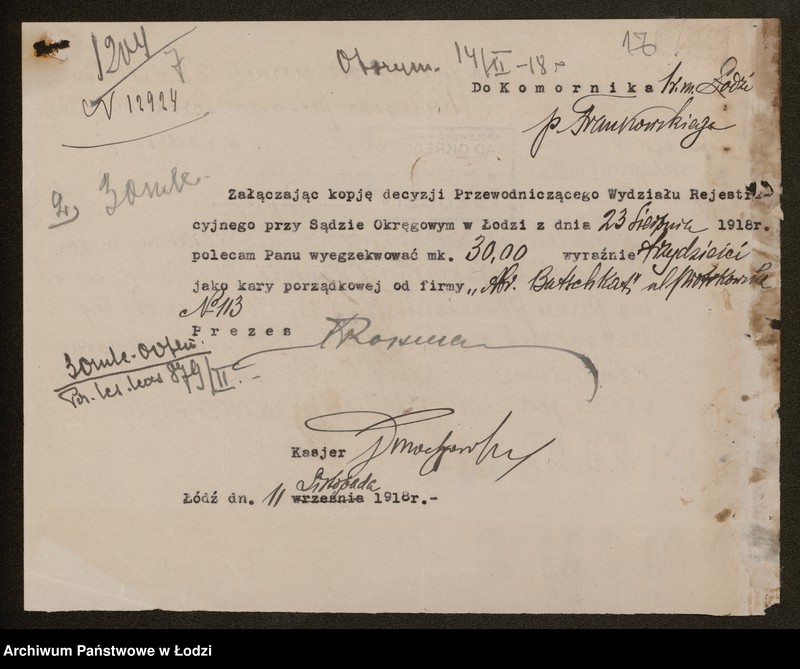 1204
7
N 12924
Otrzym. 14/XI-18r
Do Komornika tr. m. Łodzi
p. Frankowskiego
30 mk.
Załączając kopję decyzji Przewodniczącego Wydziału Rejestra-
cyjnego przy Sądzie Okręgowym w Łodzi z dnia 23 Sierpnia 1918r.
polecam Panu wyegzekwować mk. 30,00 wyraźnie trzydzieści
jako kary porządkowej od firmy „Abr. Batschkat" ul. Piotrkowska
№ 113
Prezes
30 mk. 00 fen.
879/II
Kasjer
Listopada
Łódź dn. 11 września 1918r.-
Archiwum Państwowe w Łodzi